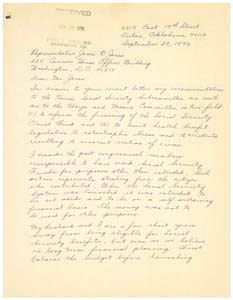 RECEIVED
6919 East 12th Street
Tulsa, Oklahoma 74112
September 28, 1976
Representative James R. Jones
Cannon House Office Building
Washington, D.C. 20515
Dear Mr. Jones:
In answer to your recent letter my recommendations
to the House Social Security Subcommittee as well
as to the Ways and Means Committee is two-fold:
(1) to reform the financing of the Social Security
Trust Fund and (2) to limit health benefit
legislation to catastrophic illness and accidents
resulting to innocent victims of crime.
I consider the past congressional members
irresponsible to have used Social Security
Funds for purposes other than intended. Such
action represents stealing from the citizen
who contributed. When the Social Security
System was launched it was intended to
be set aside and to be on a self sustaining
financial basis. The money was not to
be used for other purposes.
My husband and I are a few short years
away from being eligible for Social
Security benefits, but even so we believe
in long term financial planning. Must
balance the budget before launching